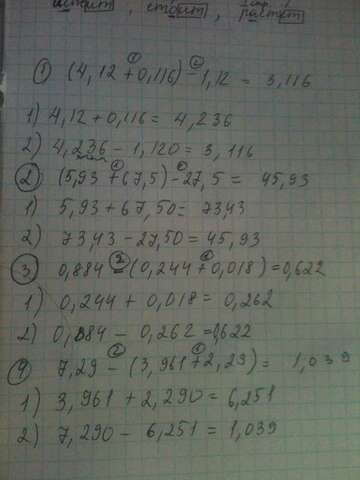 стоит, растёт
① (4,12 + 0,116) - 1,12 = 3,116
1) 4,12 + 0,116 = 4,236
2) 4,236 - 1,120 = 3,116
② (5,93 + 67,5) - 27,5 = 45,93
1) 5,93 + 67,50 = 73,43
2) 73,43 - 27,50 = 45,93
③ 0,884 - (0,244 + 0,018) = 0,622
1) 0,244 + 0,018 = 0,262
2) 0,884 - 0,262 = 0,622
④ 7,29 - (3,961 + 2,29) = 1,039
1) 3,961 + 2,290 = 6,251
2) 7,290 - 6,251 = 1,039